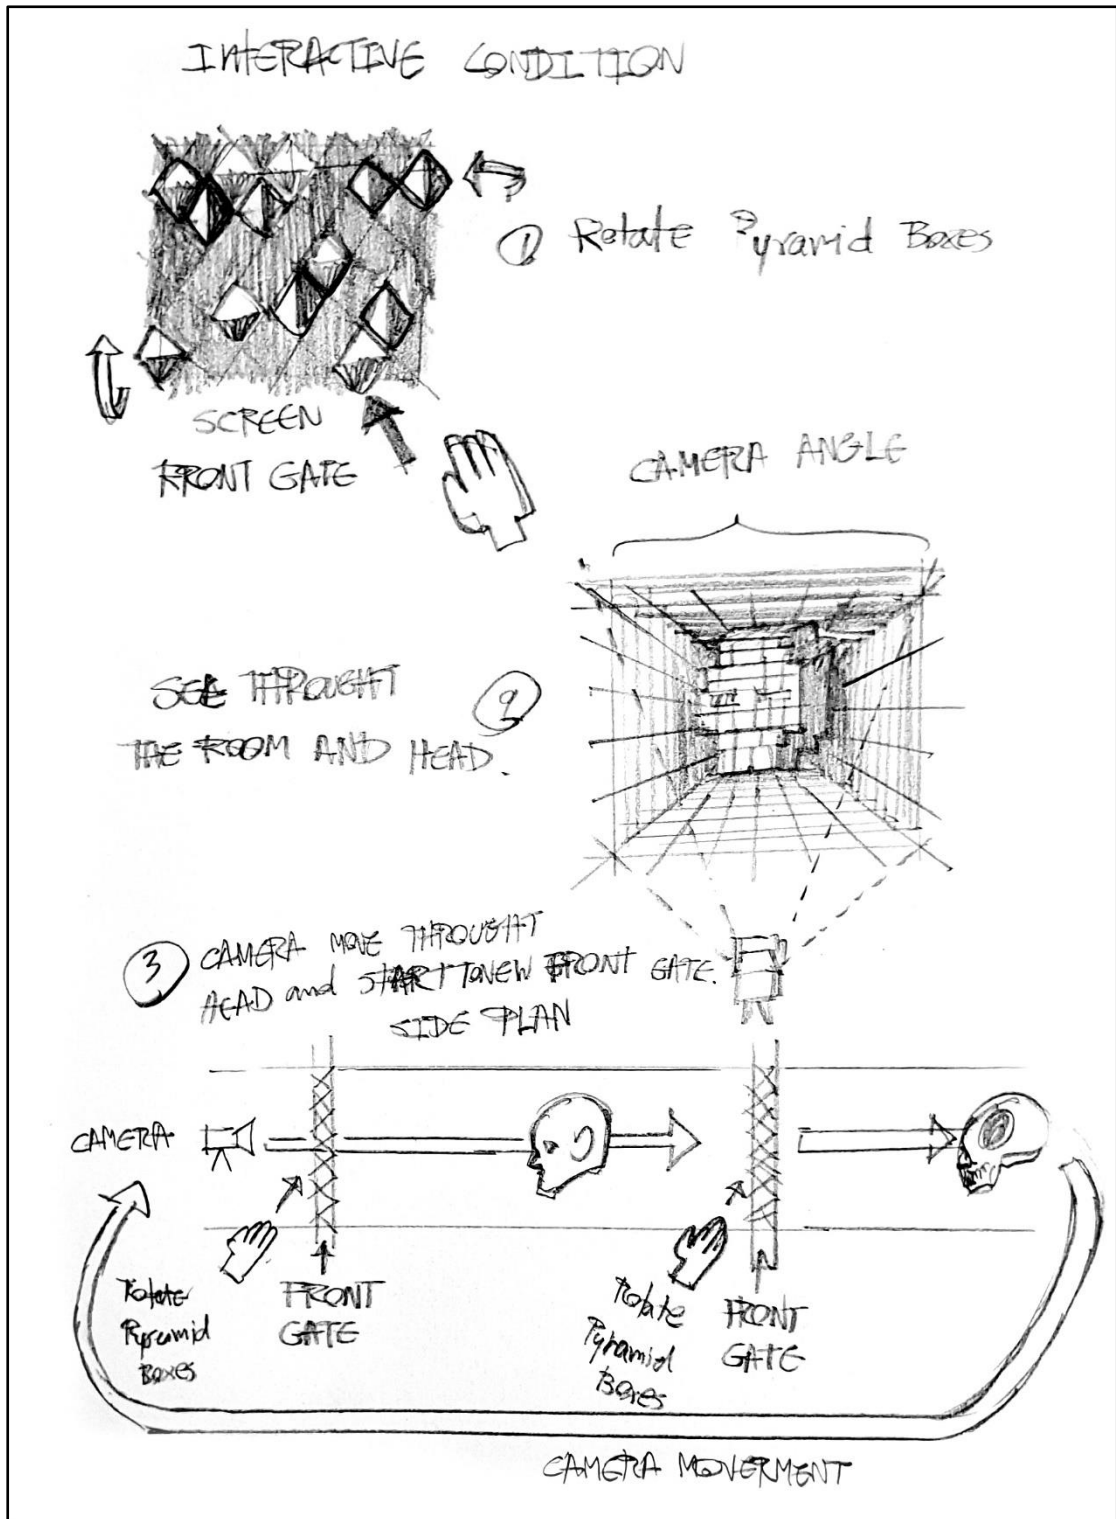 INTERACTIVE CONDITION
① Rotate Pyramid Boxes
SCREEN
FRONT GATE
CAMERA ANGLE
SEE THROUGHT ②
THE ROOM AND HEAD.
③ CAMERA MOVE THROUGHT
HEAD and START TO NEW FRONT GATE.
SIDE PLAN
CAMERA
Rotate
Pyramid
Boxes
FRONT
GATE
Rotate
Pyramid
Boxes
FRONT
GATE
CAMERA MOVERMENT